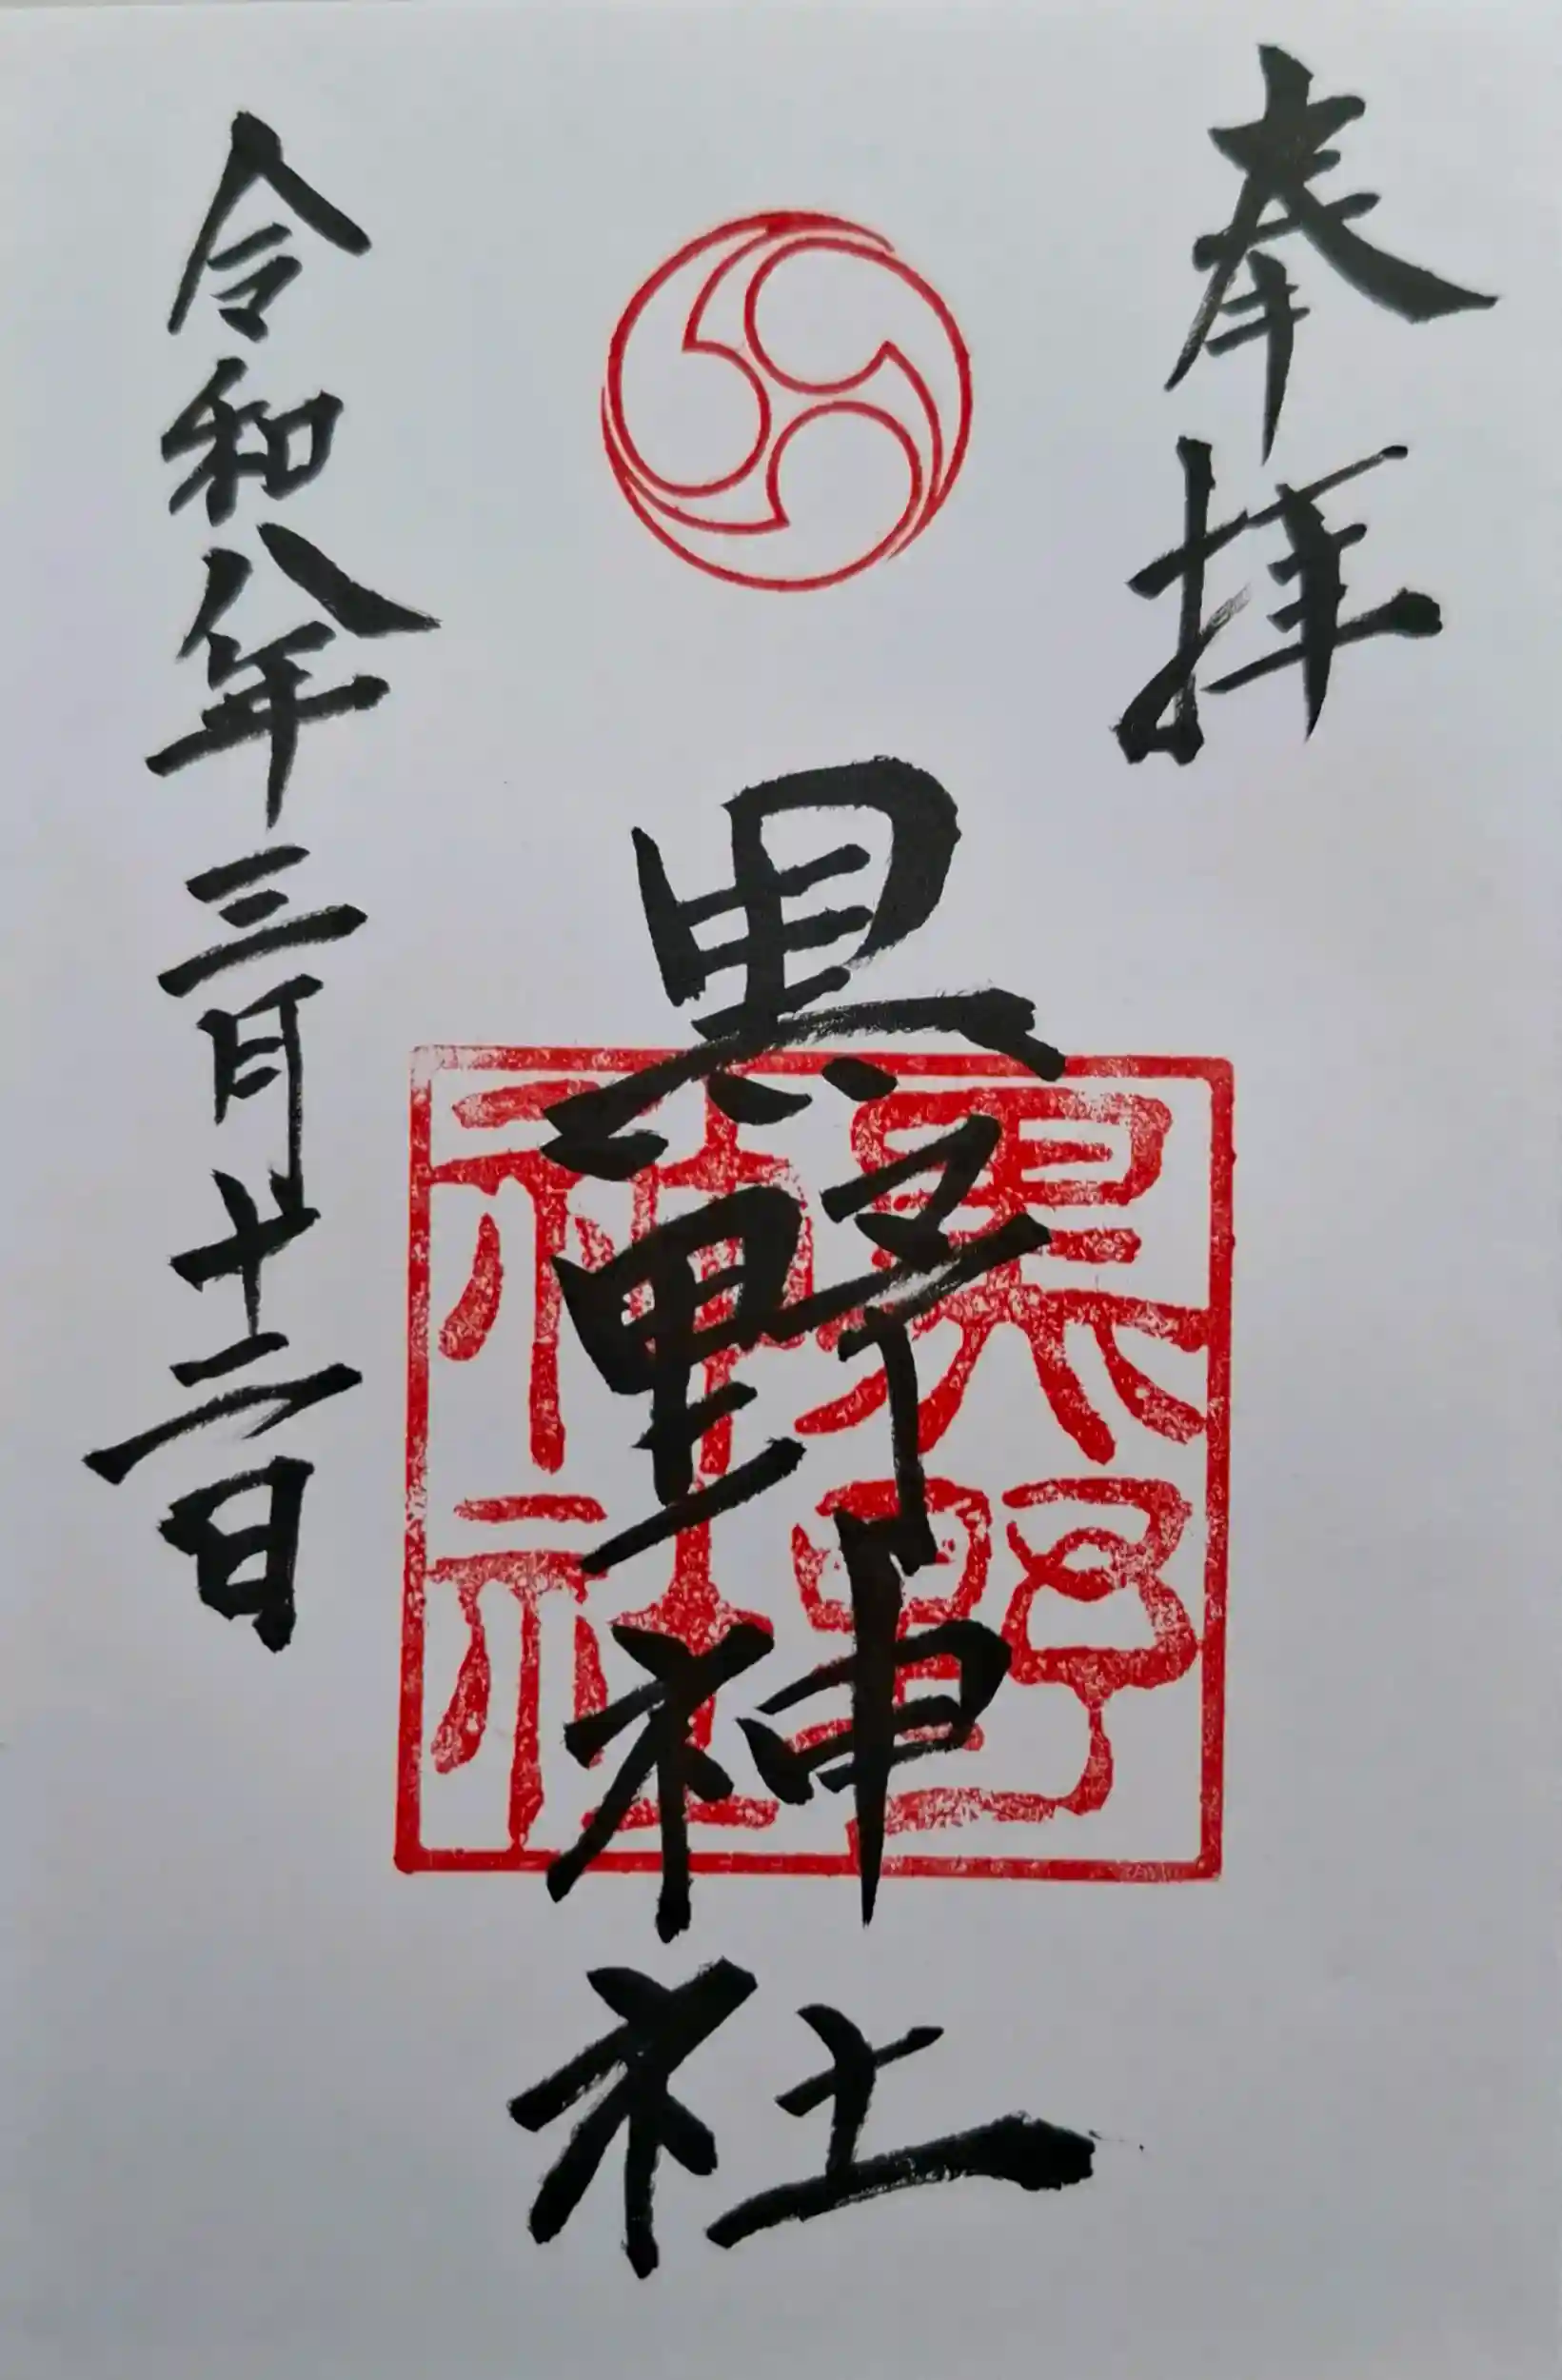 奉拝
黒野神社
令和八年三月十二日
黒野
神社